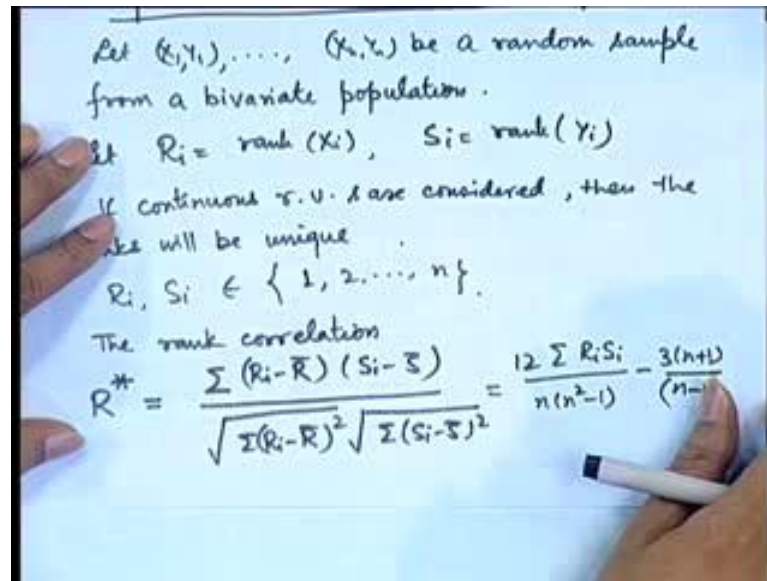 Let (X₁,Y₁), ...., (Xₙ,Yₙ) be a random sample
from a bivariate population.
Rᵢ = rank (Xᵢ), Sᵢ = rank (Yᵢ)
continuous r.v.s are considered, then the
will be unique.
Rᵢ, Sᵢ ∈ { 1, 2, ...., n}.
The rank correlation
R* = Σ (Rᵢ-R̅) (Sᵢ-S̅) / √Σ(Rᵢ-R̅)² √Σ(Sᵢ-S̅)² = 12 Σ RᵢSᵢ / n(n²-1) - 3(n+1) / (n-